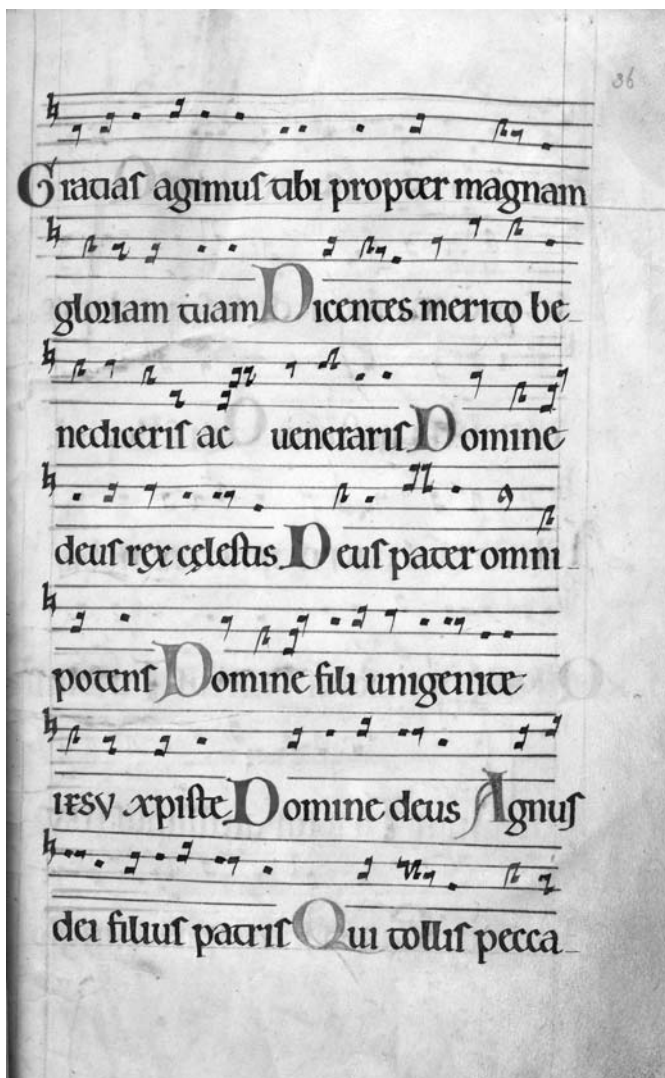 36
Gratiaſ agimuſ tibi propter magnam
gloriam tuam Dicentes merito be
nediceriſ ac ueneraris Domine
deuſ rex cęleſtis Deuſ pater omni
potenſ Domine fili unigenite
ieSV xpiſte Domine deus Agnuſ
dei filiuſ patriſ Qui tolliſ pecca